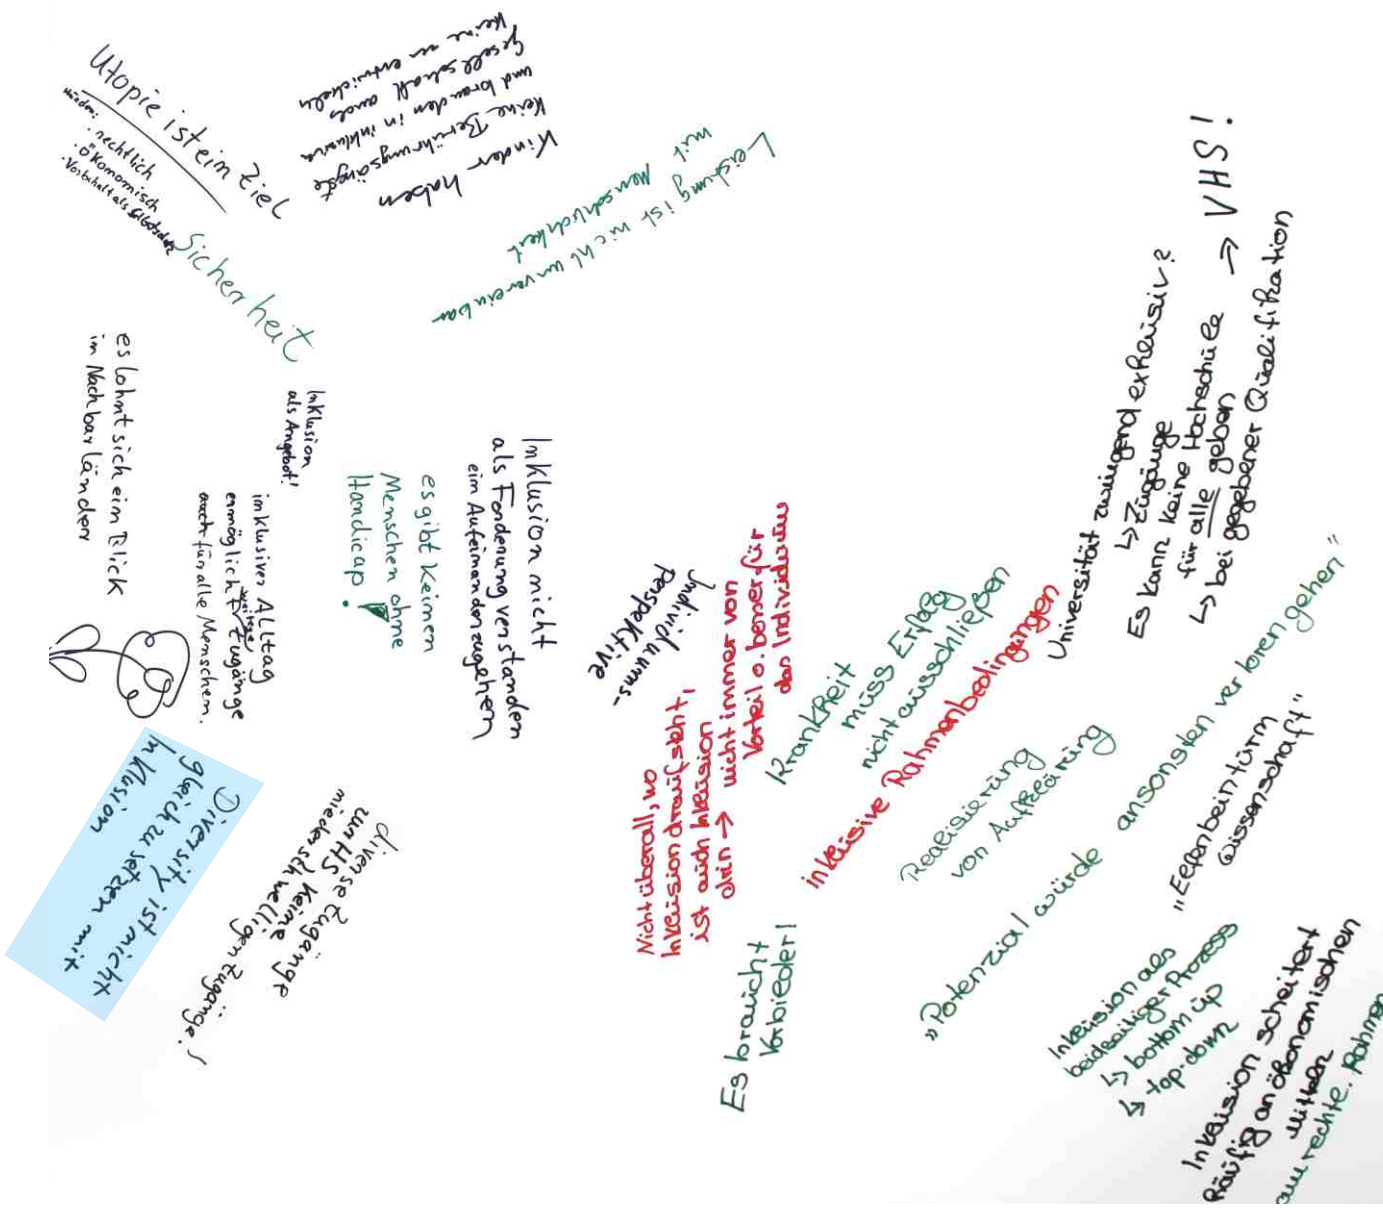 Utopie ist ein Ziel
Hürden:
· rechtlich
· Ökomomisch
· Vorbehalt als Selbstschutz
Sicherheit
Kinder haben
keine Berührungsängste
und brauchen in inklusiver
Gesellschaft auch
keine zu entwickeln
Leistung ist nicht unvereinbar
mit Menschlichkeit
es lohnt sich ein Blick
in Nachbarländer
Inklusion
als Angebot!
inklusiver Alltag
ermöglicht weitere Zugänge
auch für alle Menschen.
es gibt keinen
Menschen ohne
Handicap!
Inklusion nicht
als Forderung verstanden
ein Aufeinanderzugehen
Individuums-
perspektive
Diversity ist nicht
gleich zu setzen mit
Inklusion
diverse Zugänge
zur HS keine
niederschwelligen Zugänge!
Nicht überall, wo
Inklusion draufsteht,
ist auch Inklusion
drin → nicht immer von
Vorteil o. besser für
das Individuum
Krankheit
muss Erfolg
nicht ausschließen
inklusive Rahmenbedingungen
Universität zwingend exklusiv?
↳ Zugänge
Es kann keine Hochschule
für alle geben → VHS!
↳ bei gegebener Qualifikation
Realisierung
von Aufklärung
„Potenzial würde ansonsten verloren gehen"
„Elfenbeinturm
Wissenschaft"
Es braucht
Vorbilder!
Inklusion als
beidseitiger Prozess
↳ bottom up
↳ top-down
Inklusion scheitert
häufig an ökonomischen
Mitteln
am rechte. Rahmen